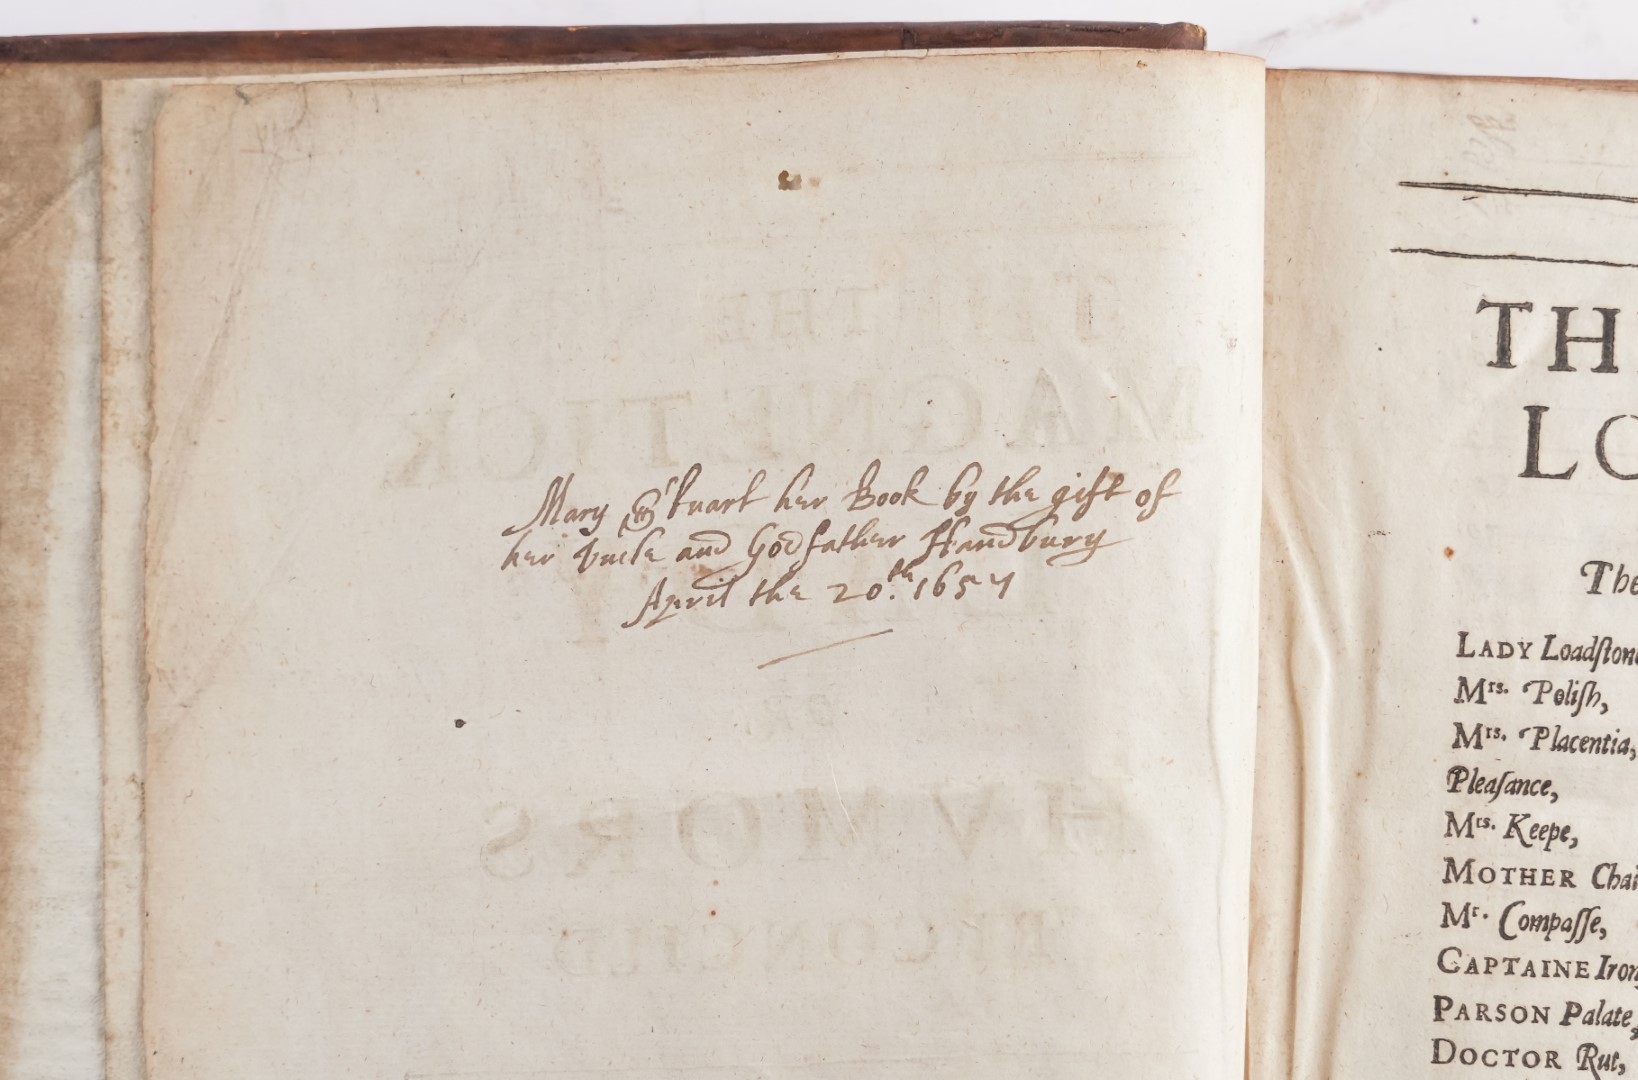 Mary Stuart her Book by the gift of
her Vncle and Godfather Handbury
April the 20.th 1657
THE
MAGNETICK
OR,
HVMORS
RECONCILD
TH
LO
The
LADY Loadſton
Mrs. Poliſh,
Mrs. Placentia,
Pleaſance,
Mrs. Keepe,
MOTHER Chai
Mr. Compaſſe,
CAPTAINE Iron
PARSON Palate,
DOCTOR Rut,